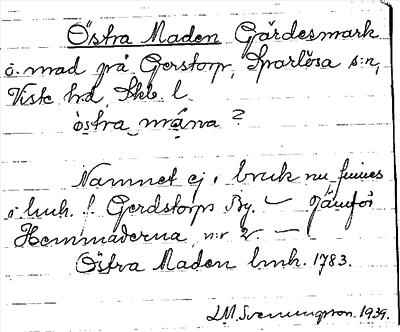 Östra Maden Gärdesmark
ö. mad på Gerstorp, Sparlösa s:n,
Viste hd, Skb. l.
östra mána ?
Namnet ej i bruk nu finnes
i lmh. f. Gerdstorps By. — Jämför
Hemmaderna, n:r 2 —
Östra Maden lmh. 1783.
J.M. Svenungsson. 1939.